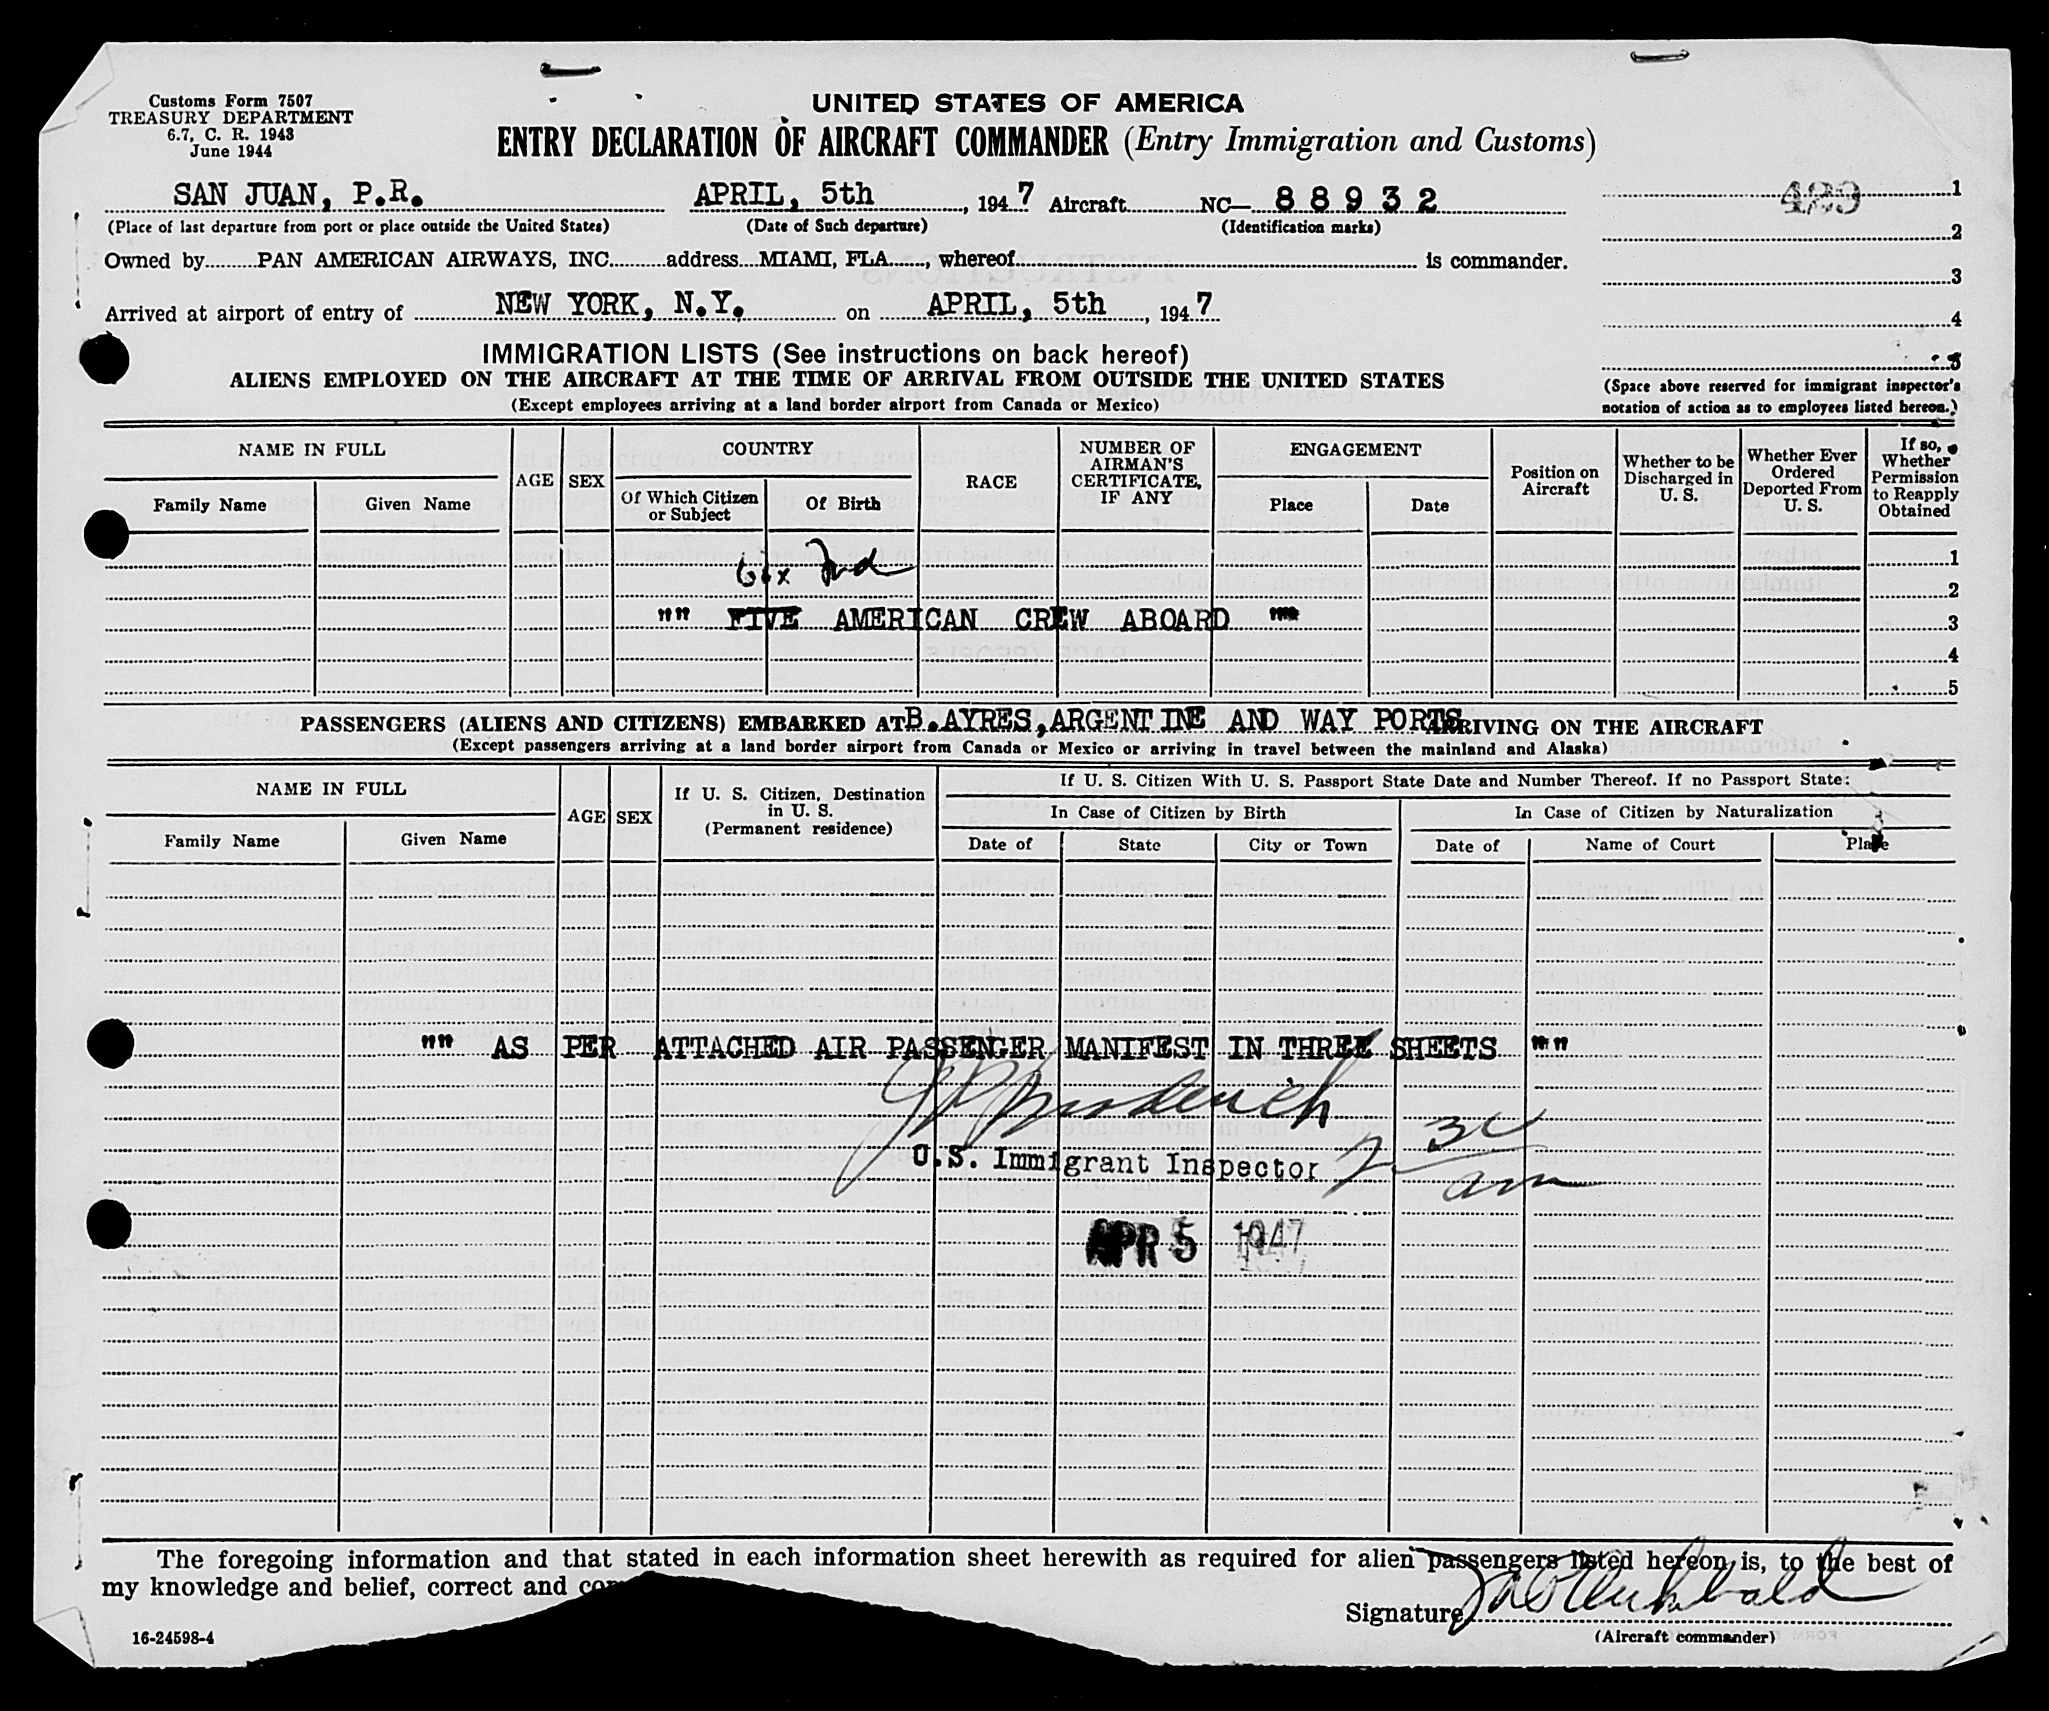 Customs Form 7507
TREASURY DEPARTMENT
6.7, C. R. 1943
June 1944
UNITED STATES OF AMERICA
ENTRY DECLARATION OF AIRCRAFT COMMANDER (Entry Immigration and Customs)
SAN JUAN, P.R. APRIL, 5th, 1947 Aircraft NC— 88932
(Place of last departure from port or place outside the United States) (Date of Such departure) (Identification marks)
Owned by PAN AMERICAN AIRWAYS, INC. address MIAMI, FLA., whereof is commander.
Arrived at airport of entry of NEW YORK, N.Y. on APRIL, 5th, 1947
429 1
2
3
4
5
(Space above reserved for immigrant inspector's
notation of action as to employees listed hereon.)
IMMIGRATION LISTS (See instructions on back hereof)
ALIENS EMPLOYED ON THE AIRCRAFT AT THE TIME OF ARRIVAL FROM OUTSIDE THE UNITED STATES
(Except employees arriving at a land border airport from Canada or Mexico)
NAME IN FULL
Family Name Given Name
AGE SEX
COUNTRY
Of Which Citizen or Subject Of Birth
RACE
NUMBER OF AIRMAN'S CERTIFICATE, IF ANY
ENGAGEMENT
Place Date
Position on Aircraft
Whether to be Discharged in U. S.
Whether Ever Ordered Deported From U. S.
If so, Whether Permission to Reapply Obtained
1
2
"" FIVE AMERICAN CREW ABOARD "" 3
4
5
PASSENGERS (ALIENS AND CITIZENS) EMBARKED AT B.AYRES, ARGENTINE AND WAY PORTS ARRIVING ON THE AIRCRAFT
(Except passengers arriving at a land border airport from Canada or Mexico or arriving in travel between the mainland and Alaska)
NAME IN FULL
Family Name Given Name
AGE SEX
If U. S. Citizen, Destination in U. S. (Permanent residence)
If U. S. Citizen With U. S. Passport State Date and Number Thereof. If no Passport State:
In Case of Citizen by Birth In Case of Citizen by Naturalization
Date of State City or Town Date of Name of Court Place
"" AS PER ATTACHED AIR PASSENGER MANIFEST IN THREE SHEETS ""
U.S. Immigrant Inspector
am
APR 5 1947
The foregoing information and that stated in each information sheet herewith as required for alien passengers listed hereon is, to the best of
my knowledge and belief, correct and
Signature
(Aircraft commander)
16-24598-4